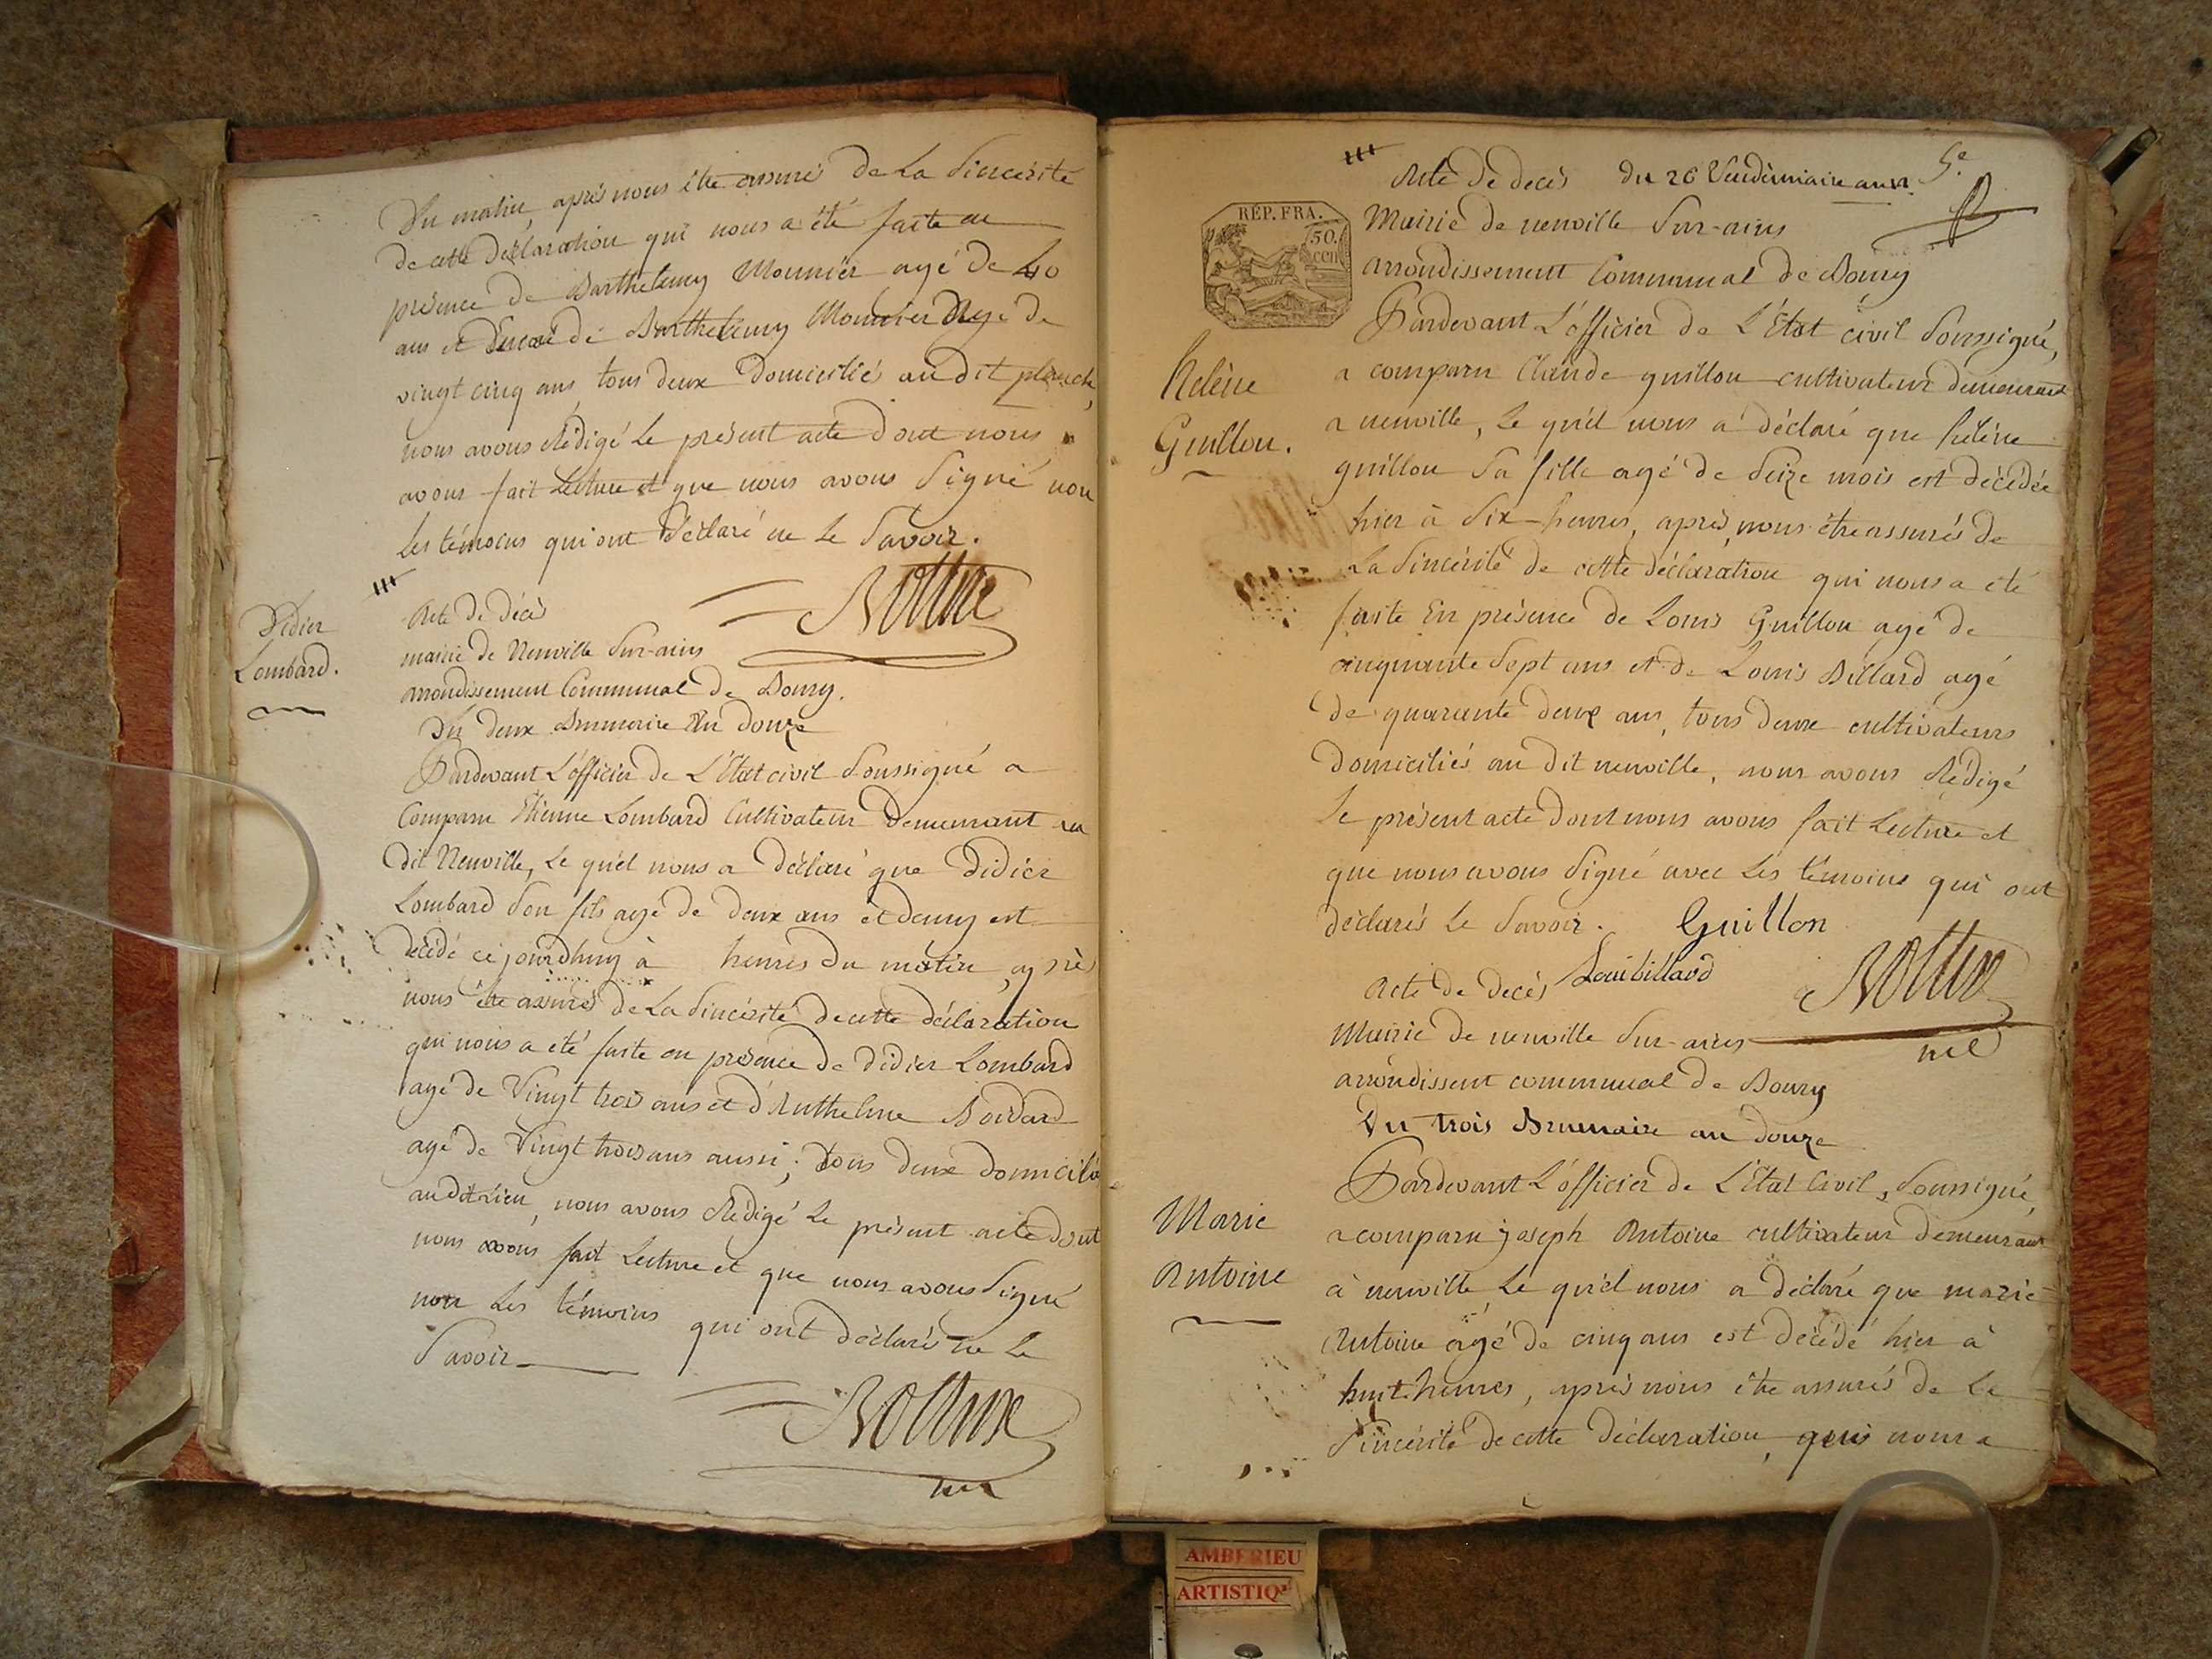 Du matin, après nous être assurés De La Sincérité
de cette déclaration qui nous a été faite en
présence de Barthelemy Mounier agé de 40
ans et de Barthelemy Mounier Agé de
vingt cinq ans, tous deux Domiciliés au dit planch,
nous avons Rédigé Le présent acte dont nous
avons fait Lecture et que nous avons Signé non
Les témoins qui ont Déclaré ne Le Savoir.
Didier
Lombard.
Acte de décès
mairie de Neuville Sur-ains
arrondissement Communal de Bourg.
Du deux Brumaire An douze
Pardevant L'officier de L'État civil Soussigné a
Comparu Etienne Lombard Cultivateur Demeurant au
dit Neuville, Le quel nous a Déclaré que Didier
Lombard Son fils agé de deux ans et demy est
décédé ce jourdhuy à heures Du matin, après
nous être assurés de La Sincérité de cette déclaration
qui nous a été faite en présence de Didier Lombard
agé de Vingt trois ans et d'Anthelme Bordard
agé de Vingt trois ans aussi, tous deux domicilié
au dit Lieu, nous avons Rédigé Le présent acte dont
nous avons fait Lecture et que nous avons Signé
non Les témoins qui ont déclarés ne Le
Savoir
Acte De decès du 26 Vendémiaire an 12
5e
RÉP. FRA.
50.
cen
Mairie de neuville Sur-ains
arrondissement Communal de Bourg
helène
Guillon.
Pardevant L'officier de L'État civil Soussigné,
a comparu Claude guillon cultivateur demeurant
a neuville, Le quel nous a déclaré que helène
guillon Sa fille agé de Seize mois est décédée
hier à Six heures, après nous être assurés de
La Sincérité de cette déclaration qui nous a été
faite En présence de Louis Guillon agé de
cinquante Sept ans et de Louis Billard agé
de quarante deux ans, tous deux cultivateurs
Domiciliés au Dit neuville, nous avons Rédigé
Le présent acte dont nous avons fait Lecture et
que nous avons Signé avec Les témoins qui ont
déclarés Le Savoir. Guillon
Loui billard
Acte de decès
Mairie de neuville Sur-ains
arrondissent communal de Bourg
Du trois Brumaire an douze
Marie
Antoine
Pardevant L'officier de L'État Civil, Soussigné,
a comparu joseph Antoine cultivateur demeurant
à neuville Le quel nous a déclaré que marie
Antoine agé de cinq ans est Décédé hier à
huit heures, après nous être assurés de La
Sincérité de cette Déclaration, qui nous a
AMBERIEU
ARTISTIQ